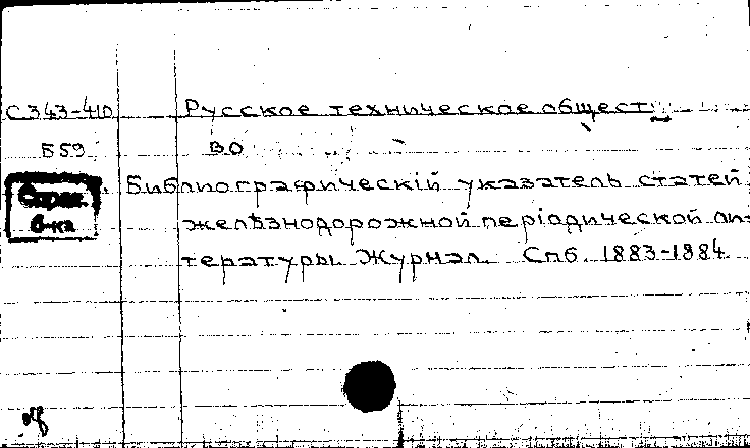 С343-410 Русское техническое общест
Б59 во
Справ. Библиографическій указатель статей
б-ка желѣзнодорожной періодической ли-
тературы. Журнал. Спб. 1883-1884